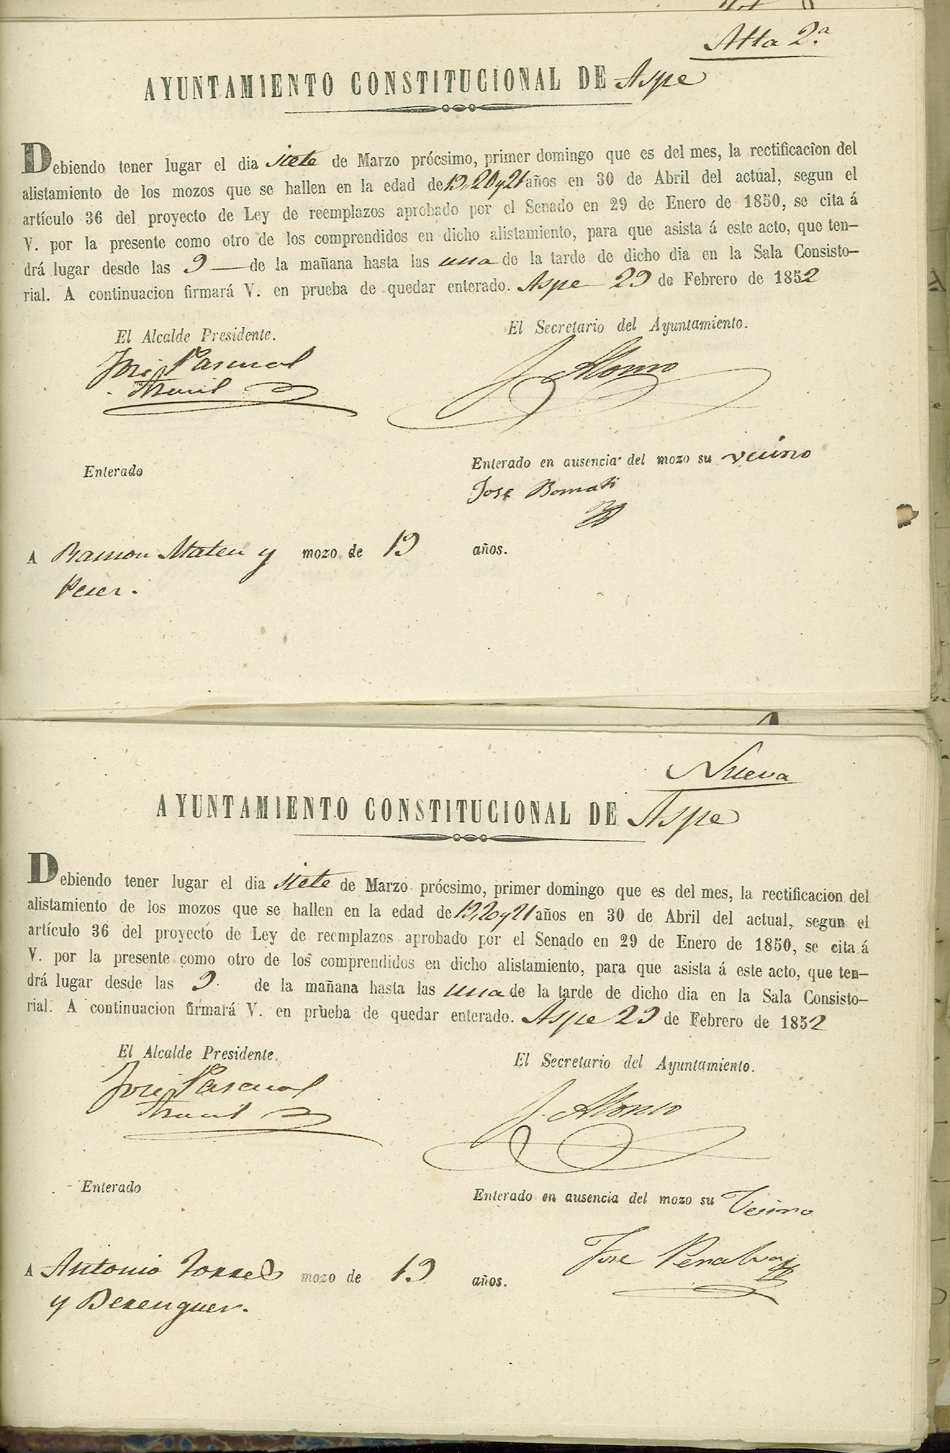 Alta 2.ª
AYUNTAMIENTO CONSTITUCIONAL DE Aspe
Debiendo tener lugar el dia siete de Marzo prócsimo, primer domingo que es del mes, la rectificacion del
alistamiento de los mozos que se hallen en la edad de 19, 20 y 21 años en 30 de Abril del actual, segun el
artículo 36 del proyecto de Ley de reemplazos aprobado por el Senado en 29 de Enero de 1850, se cita á
V. por la presente como otro de los comprendidos en dicho alistamiento, para que asista á este acto, que ten–
drá lugar desde las 9 — de la mañana hasta las una de la tarde de dicho dia en la Sala Consisto–
rial. A continuacion firmará V. en prueba de quedar enterado. Aspe 29 de Febrero de 1852
El Alcalde Presidente. El Secretario del Ayuntamiento.
José Pascual J. Alonso
Enterado Enterado en ausencia del mozo su vecino
José Bomati
A Ramon Mateu y mozo de 19 años.
Nueva
AYUNTAMIENTO CONSTITUCIONAL DE Aspe
Debiendo tener lugar el dia siete de Marzo prócsimo, primer domingo que es del mes, la rectificacion del
alistamiento de los mozos que se hallen en la edad de 19, 20 y 21 años en 30 de Abril del actual, segun el
artículo 36 del proyecto de Ley de reemplazos aprobado por el Senado en 29 de Enero de 1850, se cita á
V. por la presente como otro de los comprendidos en dicho alistamiento, para que asista á este acto, que ten–
drá lugar desde las 9 de la mañana hasta las una de la tarde de dicho dia en la Sala Consisto–
rial. A continuacion firmará V. en prueba de quedar enterado. Aspe 29 de Febrero de 1852
El Alcalde Presidente. El Secretario del Ayuntamiento.
José Pascual J. Alonso
Enterado Enterado en ausencia del mozo su Vecino
José Penalva
A Antonio Torres mozo de 19 años.
y Berenguer.